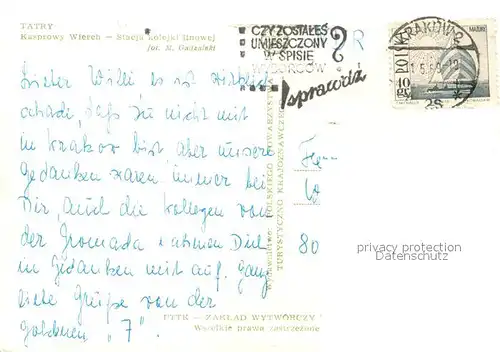 TATRY
Kasprowy Wierch — Stacja kolejki linowej
fot. M. Gadzalski
CZY ZOSTAŁEŚ
UMIESZCZONY
W SPISIE
WYBORCÓW
?
sprawdź
R
KRAKÓW 2
POLSKA
10 gr
MAZURY
Lieber Willi, es ist wirklich
schade, daß Du nicht mit
in Krakov bist aber unsere
Gedanken waren immer bei
Dir, auch die Kollegen von
der Gromada nahmen Dich
in Gedanken mit auf. Ganz
liebe Grüße von der
goldenen „7".
Herrn
W
80
TURYSTYCZNO KRAJOZNAWCZE
PTTK — ZAKŁAD WYTWÓRCZY
Wszelkie prawa zastrzeżone
privacy protection
Datenschutz